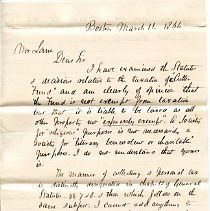 Boston March 11. 1864
Mr Lorin
Dear Sir
I have examined the Statutes
& decisions relative to the taxation of
Fund" and am clearly of opinion that
the Fund is not exempt from taxation
but that it is liable to be taxed as all
other property not expressly exempt. A
for religious" purposes is not necessarily a
Society for literary benevolent or charitable"
purposes. I do not understand that yours
is.
The manner of collecting a personal tax
is distinctly designated in of General
Statutes. and that follows on the
same subject. I cannot add anything to